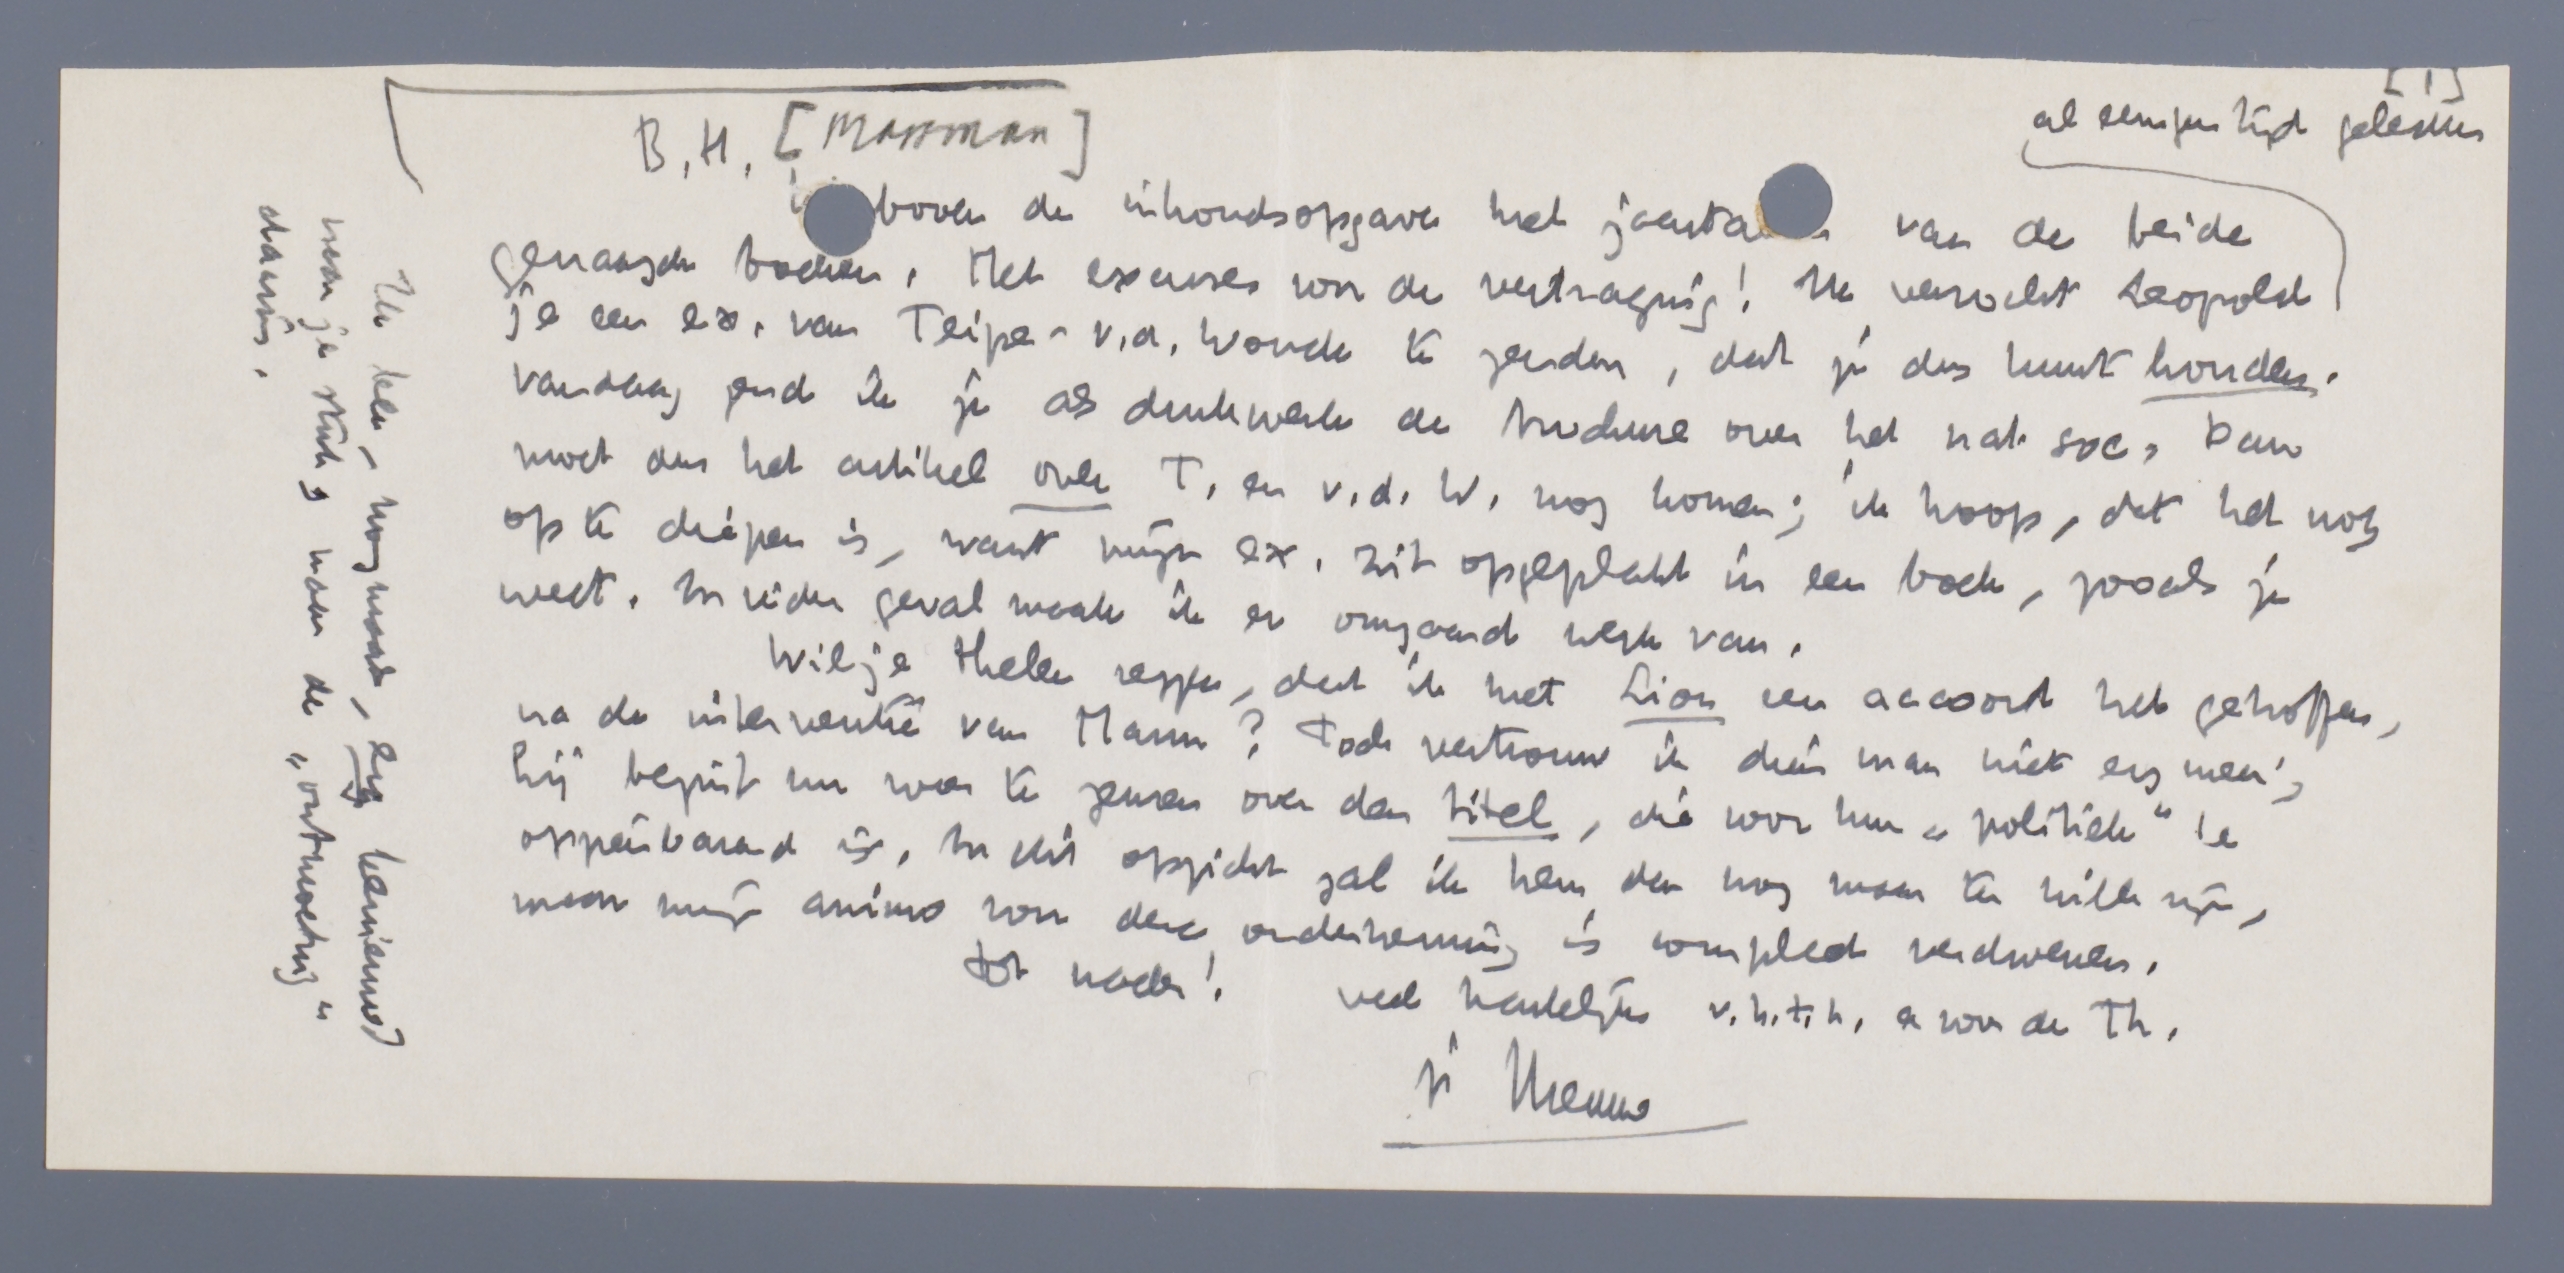 [1]
al eenigen tijd geleden
B.H. [Marsman]
boven de inhoudsopgaven het van de beide
gevraagde boeken. Met excuses voor de vertraging! Ik verzocht Leopold
je een ex. van Teipe - v.d. Woude te zenden, dat je dus kunt houden.
Vandaag zend ik je als drukwerk de brochure over het nat. soc. Dan
moet dus het artikel over T. en v.d. W. nog komen; ik hoop, dat het nog
op te diepen is, want mijn ex. zit opgeplakt in een boek, zooals je
weet. In ieder geval maak ik er omgaand werk van.
Wil je Thelen zeggen, dat ik met Lion een accoord heb getroffen,
na de interventie van Mann? Toch vertrouw ik dien man niet erg meer;
hij begint nu weer te zeuren over den titel, die voor hun „politiek" te
opzienbarend is. In dit opzicht zal ik hem dan nog maar ter wille zijn,
maar mijn animo voor deze onderneming is compleet verdwenen.
Tot nader! veel hartelijks v.h.t.h. en voor de Th.
je Menno
Ik ben, nogmaals, erg benieuwd
naar je stuk, naar de „ontmoeting"
daarin.